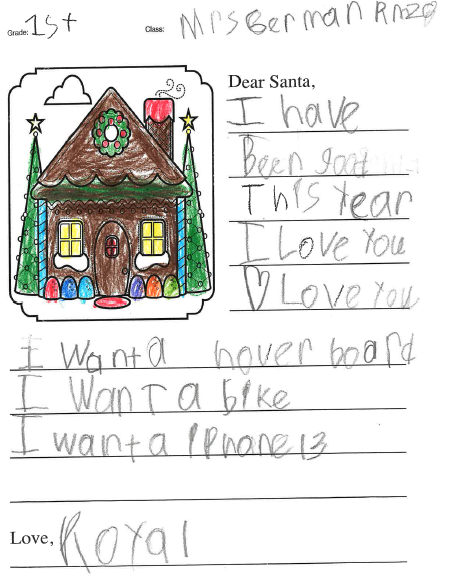 Grade: 1st Class: Mrs German Rm20
Dear Santa,
I have
Been good
This Year
I Love You
♡ Love You
I Want a hover board
I Want a bike
I want a iPhone 13
Love, Royal